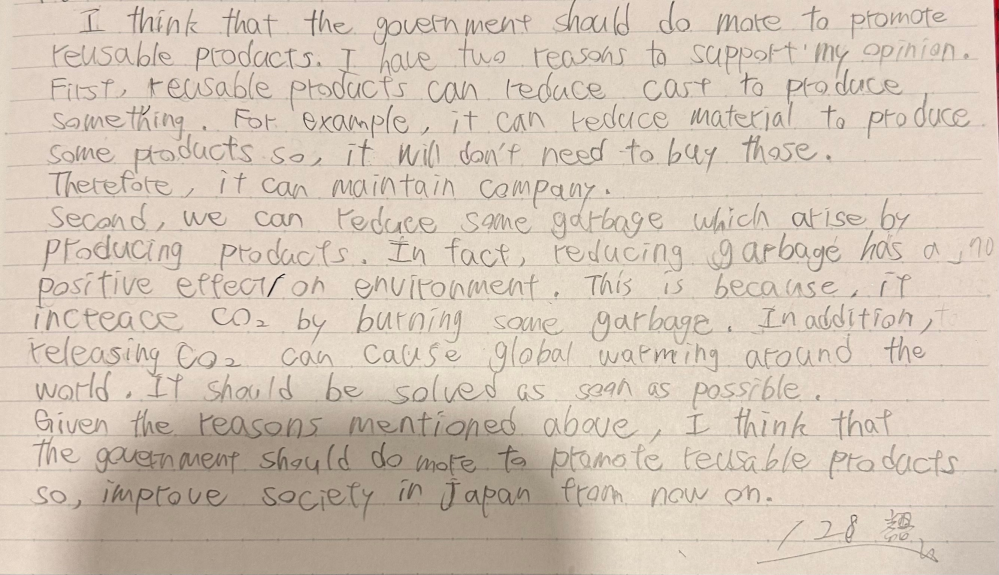 I think that the government should do more to promote
reusable products. I have two reasons to support my opinion.
First, reusable products can reduce cast to produce
something. For example, it can reduce material to produce
some products so, it will don't need to buy those.
Therefore, it can maintain company.
Second, we can reduce some garbage which arise by
producing products. In fact, reducing garbage has a
positive effect on environment. This is because, it
increace CO₂ by burning some garbage. In addition,
releasing CO₂ can cause global warming around the
world. It should be solved as soon as possible.
Given the reasons mentioned above, I think that
the government should do more to promote reusable products
so, improve society in Japan from now on.
128